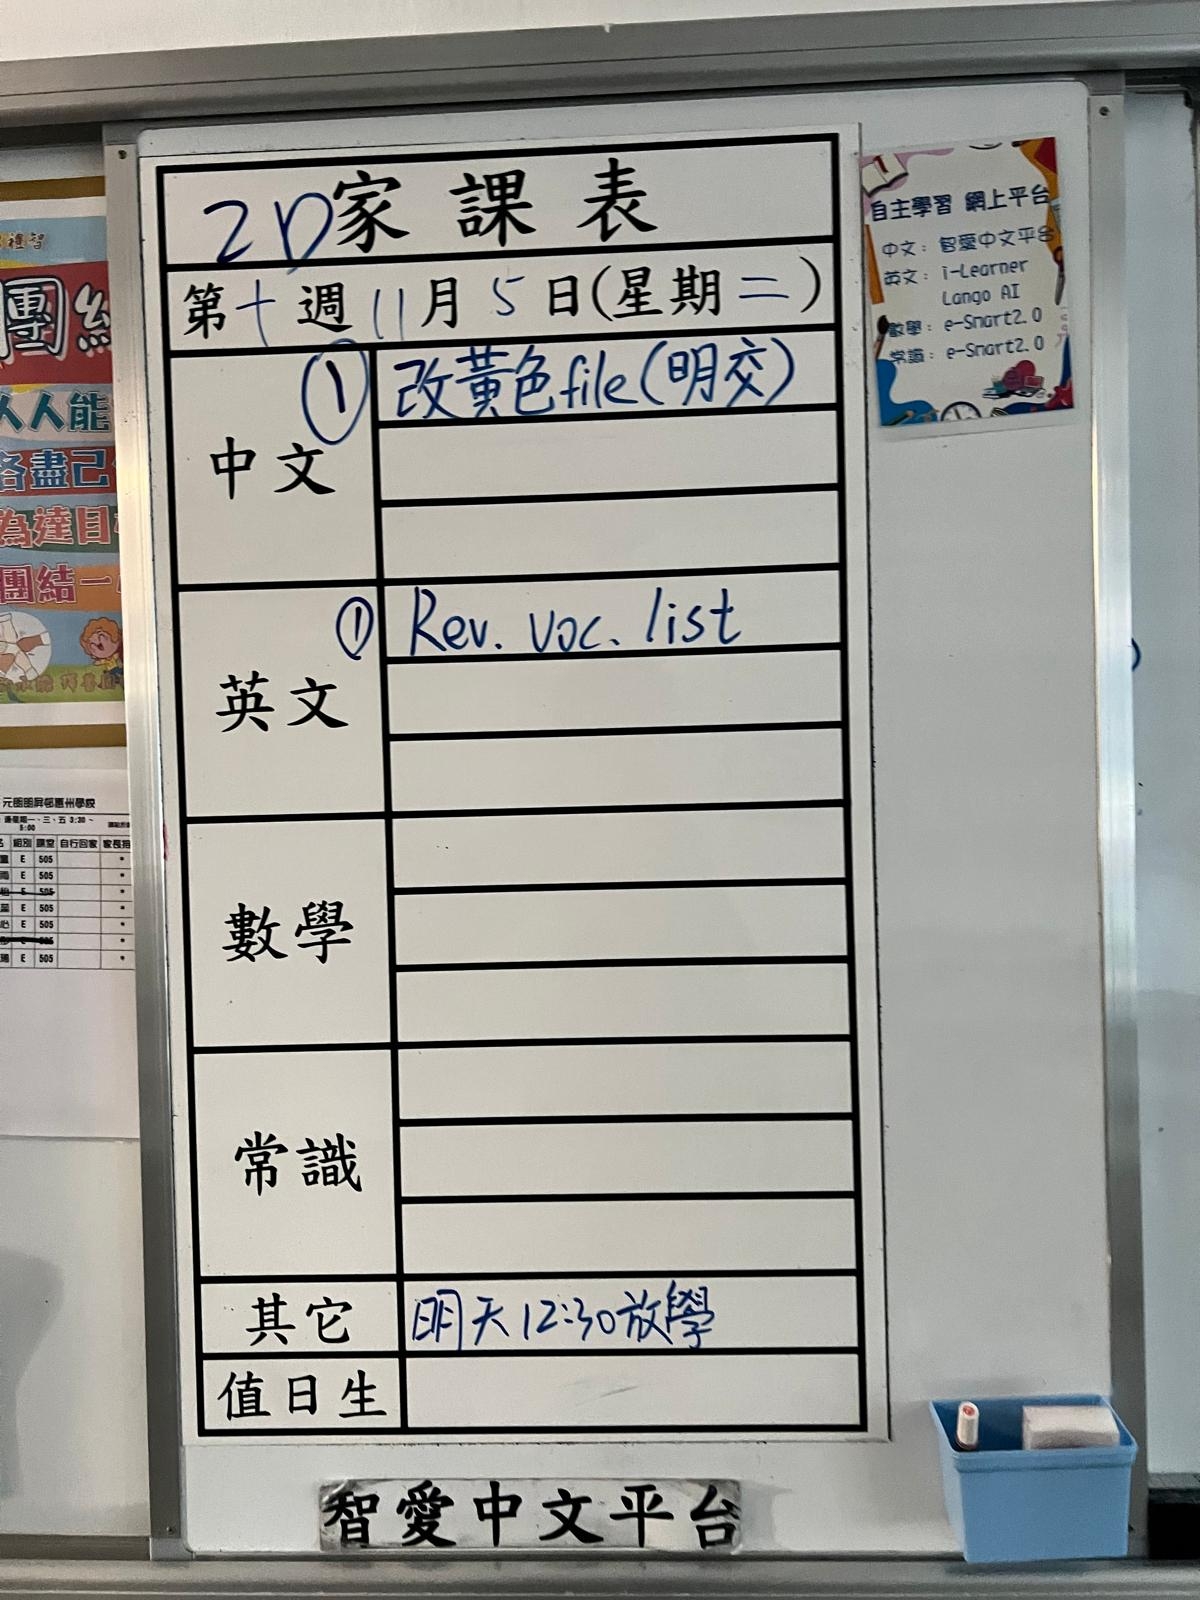 2D家課表
第十週11月5日(星期二)
中文
① 改黃色file(明交)
英文
① Rev. voc. list
數學
常識
其它
明天12:30放學
值日生
智愛中文平台
自主學習 網上平台
中文：智愛中文平台
英文：i-Learner
Lango AI
數學：e-Smart2.0
常識：e-Smart2.0
禮智
團結
人人能
各盡己
為達目
團結一
元朗朗屏邨惠州學校
一、三、五 3:30 ~
5:00
組別 課室 自行回家 家長接
E 505 *
E 505 *
E 505 *
E 505 *
E 505 *
E 505 *
E 505 *